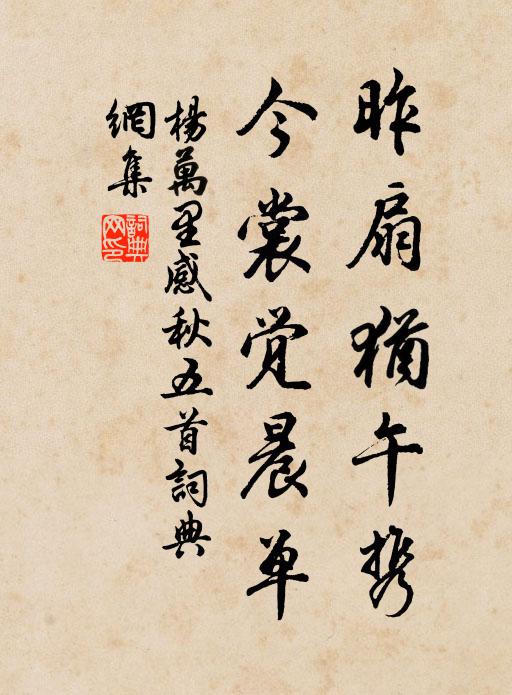 昨扇猶午携
今裳觉晨单
楊萬里感秋五首詞典
網集
詞典
网印